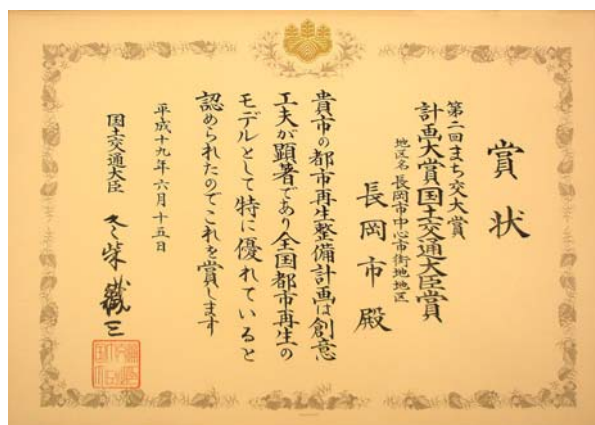 賞状
第二回まち交大賞
計画大賞国土交通大臣賞
地区名 長岡市中心市街地地区
長岡市殿
貴市の都市再生整備計画は創意
工夫が顕著であり全国都市再生の
モデルとして特に優れていると
認められたのでこれを賞します
平成十九年六月十五日
国土交通大臣 冬柴鐵三